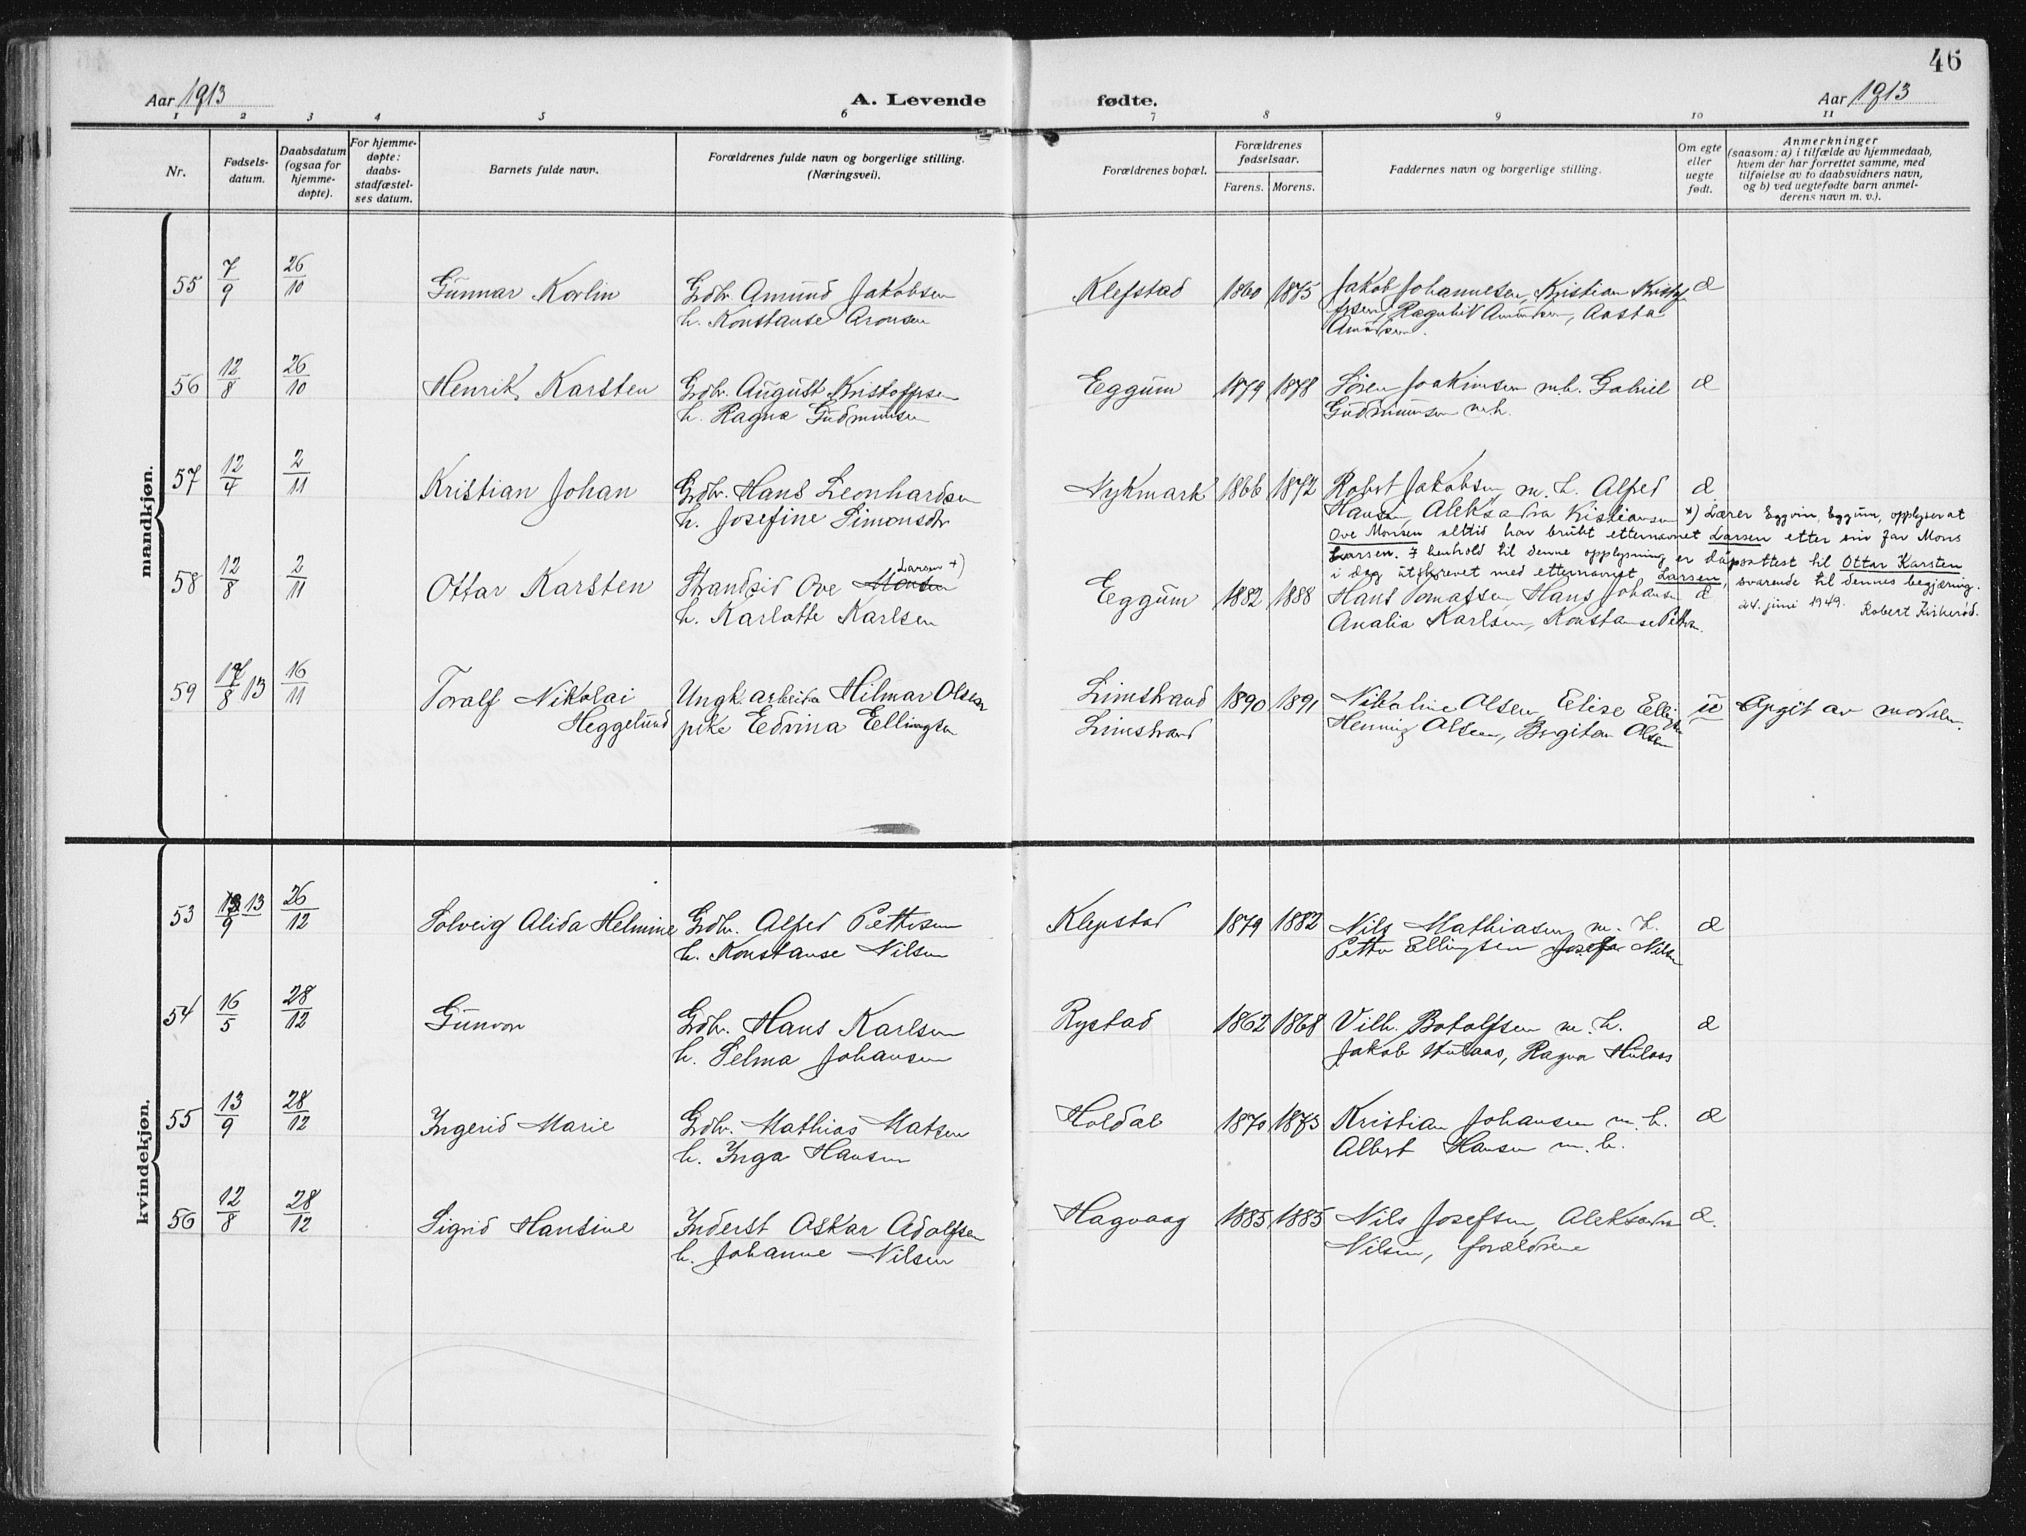 46
Aar 1913
A. Levende fødte.
Aar 1913
1 2 3 4 5 6 7 8 9 10 11
Nr.
Fødsels-
datum.
Daabsdatum
(ogsaa for
hjemme-
døpte).
For hjemme-
døpte:
daabs-
stadfæstel-
ses datum.
Barnets fulde navn.
Forældrenes fulde navn og borgerlige stilling.
(Næringsvei).
Forældrenes bopæl.
Forældrenes
fødselsaar.
Farens. Morens.
Faddernes navn og borgerlige stilling.
Om egte
eller
uegte
født.
Anmerkninger
(saasom: a) i tilfælde av hjemmedaab,
hvem der har forrettet samme, med
tilføielse av to daabsvidners navn,
og b) ved uegtefødte barn anmel-
derens navn m. v.).
mandkjøn.
55 7/9 26/10 Gunnar Korlin Grdbr. Amund Jakobsen Klefstad 1860 1875 Jakob Johannesen, Kristian Kristof æ
h. Konstanse Aronsen fersen, Ragnhil Amundsen, Aasta
Amundsen.
56 12/8 26/10 Henrik Karsten Grdbr. August Kristoffersen Eggum 1879 1878 Sören Joakimsen m.h. Gabriel æ
h. Ragna Gudmunsen Gudmunsen m.h.
57 12/4 2/11 Kristian Johan Grdbr. Hans Leonhardsen Nykmark 1866 1872 Robert Jakobsen m. h. Alfred æ
h. Josefine Simonsdtr Hansen, Aleksandra Kristiansen
*) Lærer Eggvin, Eggum, opplyser at
Ove Monsen alltid har brukt etternavnet Larsen etter sin far Mons
Larsen. I henhold til denne opplysning er dåpsattest til Ottar Karsten
i dag utskrevet med etternavnet Larsen, svarende til dennes begjæring.
24. juni 1949. Robert Kisherød.
58 12/8 2/11 Ottar Karsten Strandsid Ove Monsen Larsen *) Eggum 1882 1888 Hans Tomassen, Hans Johansen æ
h. Karlotte Karlsen Analia Karlsen, Konstanse Petters.
59 17/8 13 16/11 Toralf Nikolai Ungk. arbeider Hilmar Olsen Limstrand 1890 1891 Nikoline Olsen, Elise Ellingsen u Opgit av moderen.
Heggelund pike Edvina Ellingsen Limstrand Henning Olsen, Birgitan Olsen
kvindekjøn.
53 13/9 13 26/12 Solveig Alida Helmine Grdbr. Alfred Pettersen Klepstad 1879 1882 Nils Mathiasen m. h. æ
h. Konstanse Nilsen Petter Ellingsen Josefa Nilsen
54 16/5 28/12 Gunvor Grdbr. Hans Karlsen Rystad 1862 1868 Vilh. Botolfsen m. h. æ
h. Selma Johansen Jakob Hulaas, Ragna Hulaas
55 13/9 28/12 Ingerid Marie Grdbr. Mathias Matsen Holdal 1870 1873 Kristian Johansen m. h. æ
h. Inga Hansen Albert Hansen m. h.
56 12/8 28/12 Sigrid Hansine Inderst Oskar Adolfsen Hagvaag 1885 1885 Nils Josefsen, Aleksandra æ.
h. Johanne Nilsen Nilsen, forældrene